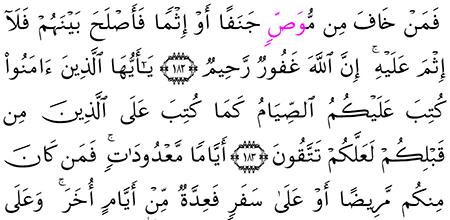 فَمَنْ خَافَ مِن مُّوَصٍّ جَنَفًا أَوْ إِثْمًا فَأَصْلَحَ بَيْنَهُمْ فَلَآ
إِثْمَ عَلَيْهِ ۚ إِنَّ ٱللَّهَ غَفُورٌ رَّحِيمٌ ۝١٨٢ يَـٰٓأَيُّهَا ٱلَّذِينَ ءَامَنُوا۟
كُتِبَ عَلَيْكُمُ ٱلصِّيَامُ كَمَا كُتِبَ عَلَى ٱلَّذِينَ مِن
قَبْلِكُمْ لَعَلَّكُمْ تَتَّقُونَ ۝١٨٣ أَيَّامًا مَّعْدُودَٰتٍ ۚ فَمَن كَانَ
مِنكُم مَّرِيضًا أَوْ عَلَىٰ سَفَرٍ فَعِدَّةٌ مِّنْ أَيَّامٍ أُخَرَ ۚ وَعَلَى